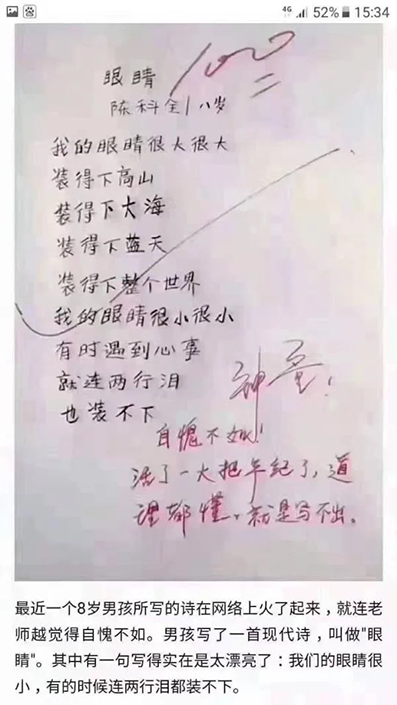 4G 52% 15:34
100
眼睛
陈科全 八岁
我的眼睛很大很大
装得下高山
装得下大海
装得下蓝天
装得下整个世界
我的眼睛很小很小
有时遇到心事
就连两行泪
也装不下
神童!
自愧不如!
活了一大把年纪了,道
理都懂。就是写不出。
最近一个8岁男孩所写的诗在网络上火了起来,就连老
师越觉得自愧不如。男孩写了一首现代诗,叫做"眼
睛"。其中有一句写得实在是太漂亮了:我们的眼睛很
小,有的时候连两行泪都装不下。